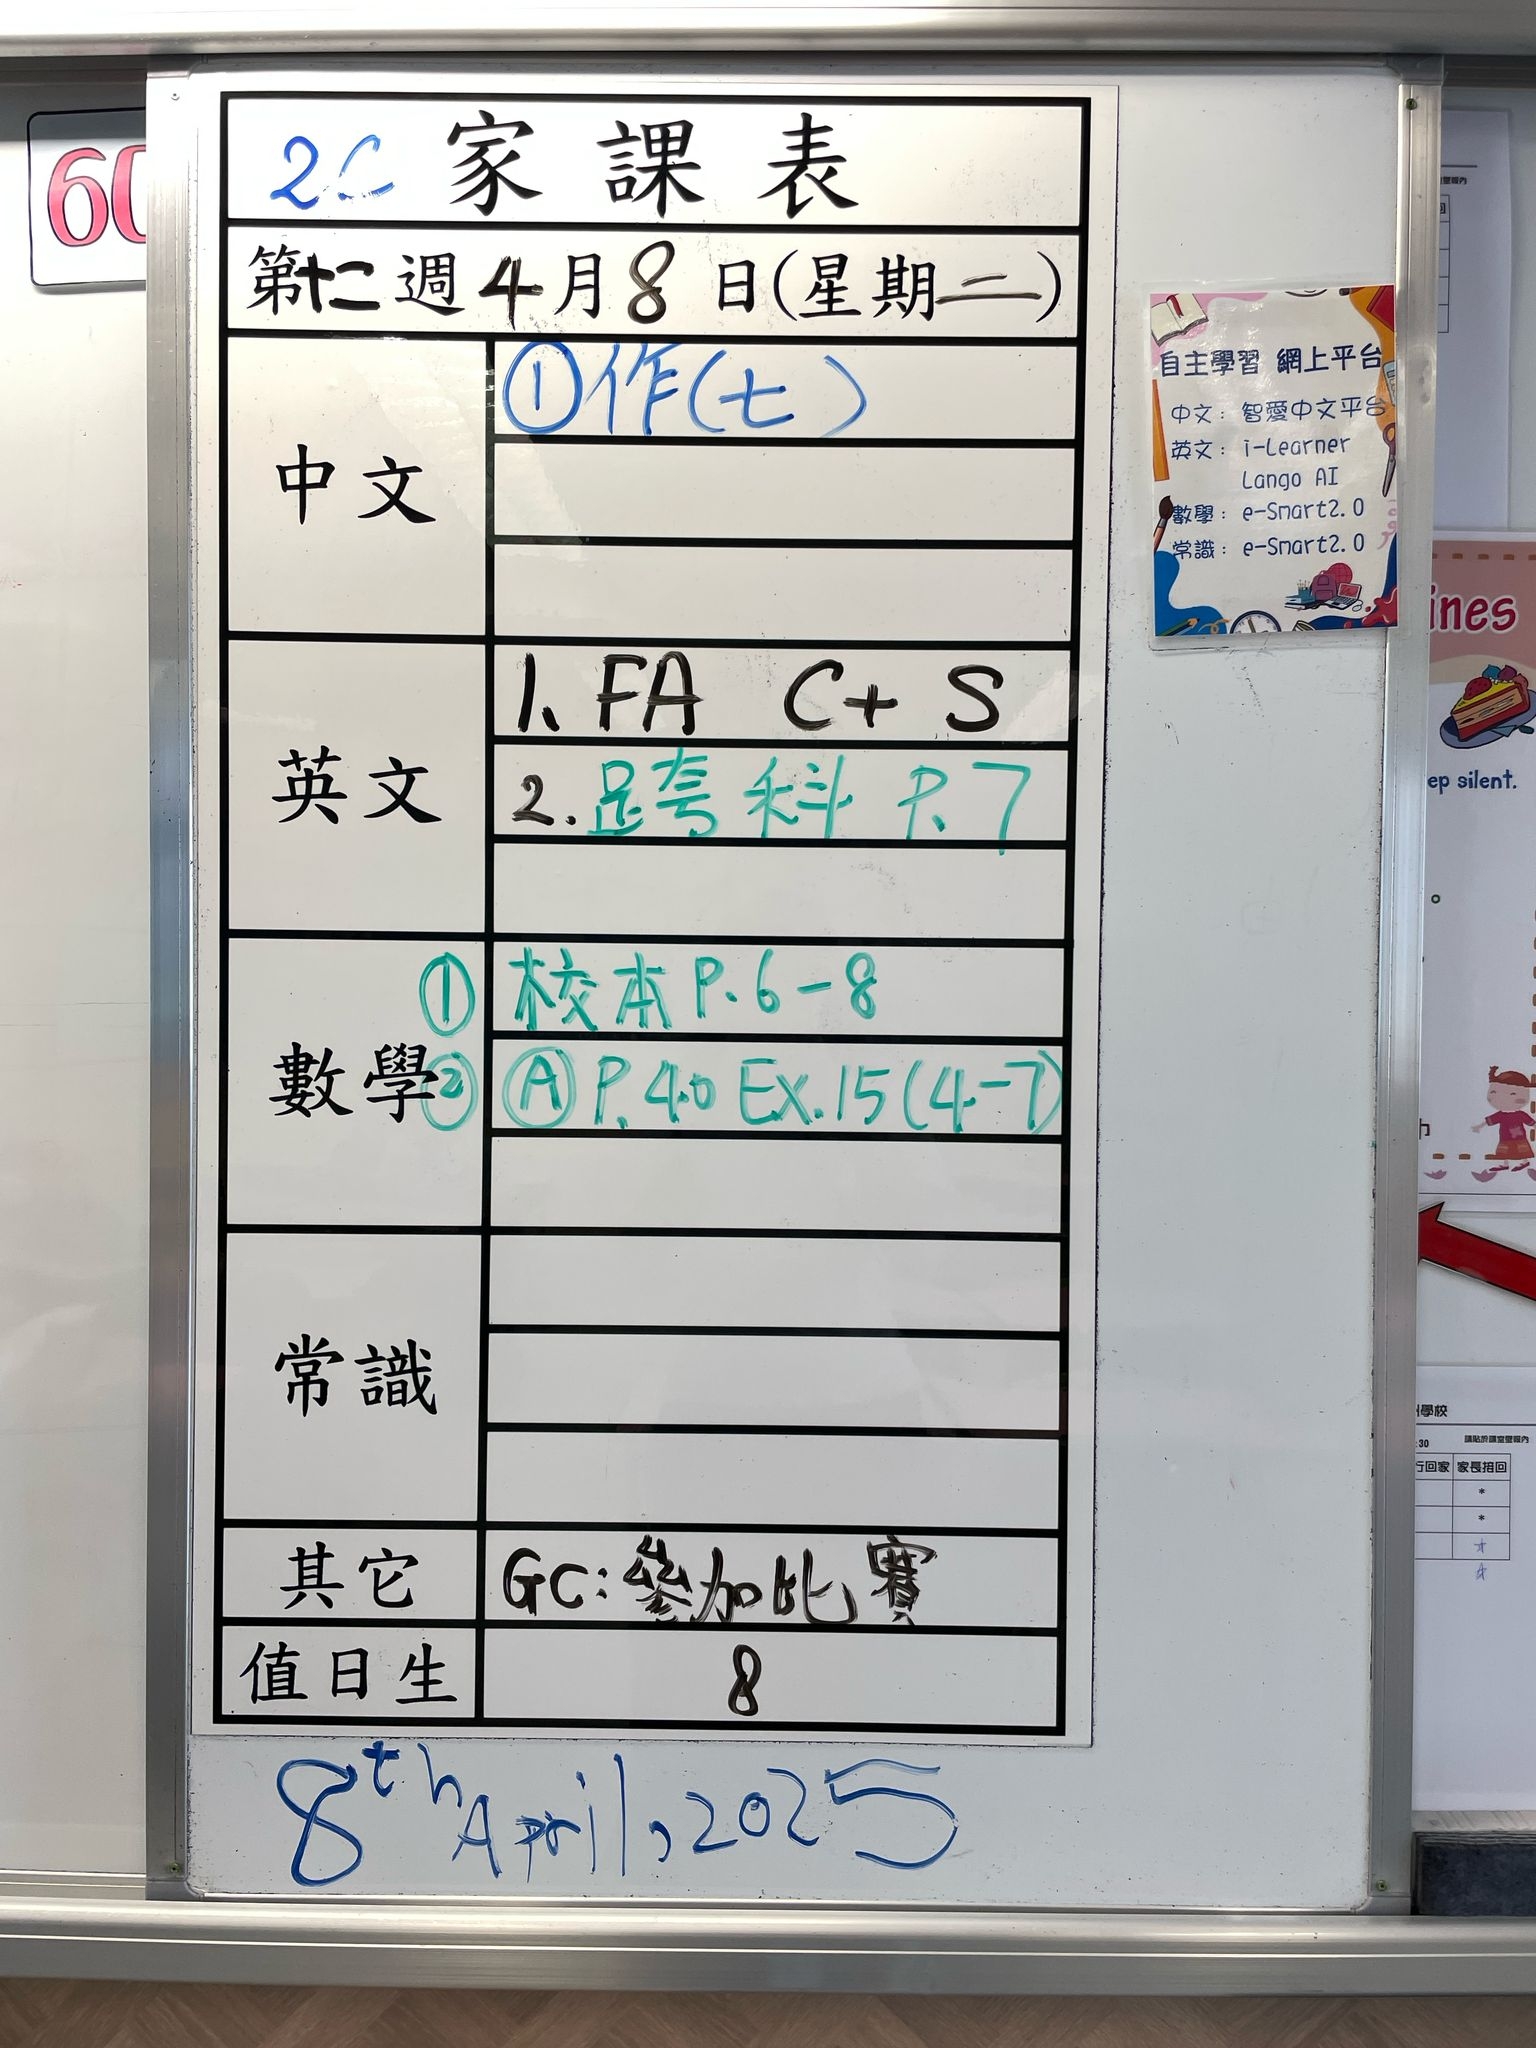 60
2C 家課表
第十二週 4月8日(星期二)
中文
①作(七)
英文
1. FA C+S
2. 跨科 P.7
數學
① 校本 P.6-8
② Ⓐ P.40 Ex.15(4-7)
常識
其它
GC:參加比賽
值日生
8
8th April, 2025
自主學習 網上平台
中文: 智愛中文平台
英文: i-Learner
Lango AI
數學: e-Smart2.0
常識: e-Smart2.0
ines
ep silent.
學校
:30
請貼於課室壁報內
行回家 家長接回
*
*